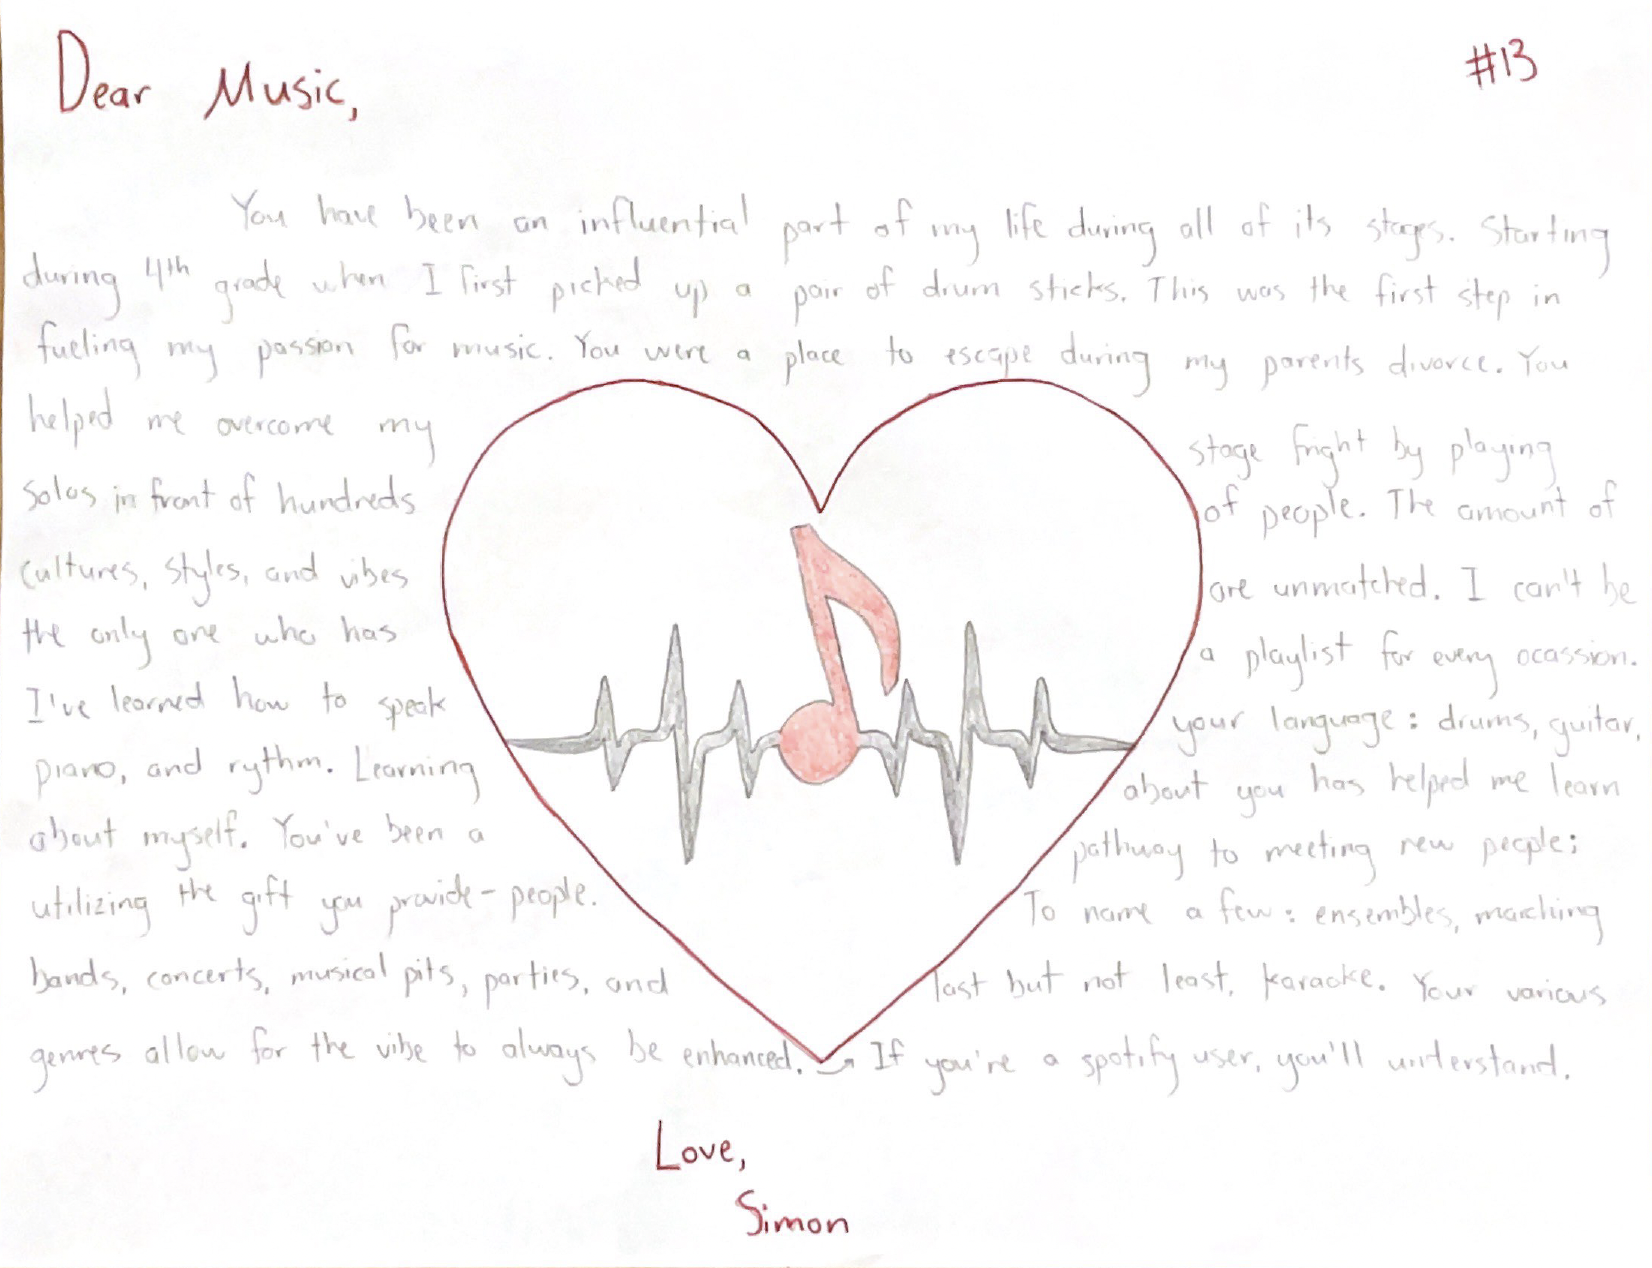 Dear Music,
#13
You have been an influential part of my life during all of its stages. Starting
during 4th grade when I first picked up a pair of drum sticks. This was the first step in
fueling my passion for music. You were a place to escape during my parents divorce. You
helped me overcome my stage fright by playing
solos in front of hundreds of people. The amount of
cultures, styles, and vibes are unmatched. I can't be
the only one who has a playlist for every ocassion.
I've learned how to speak your language: drums, guitar,
piano, and rythm. Learning about you has helped me learn
about myself. You've been a pathway to meeting new people;
utilizing the gift you provide - people. To name a few: ensembles, marching
bands, concerts, musical pits, parties, and last but not least, karaoke. Your various
genres allow for the vibe to always be enhanced. → If you're a spotify user, you'll understand.
Love,
Simon